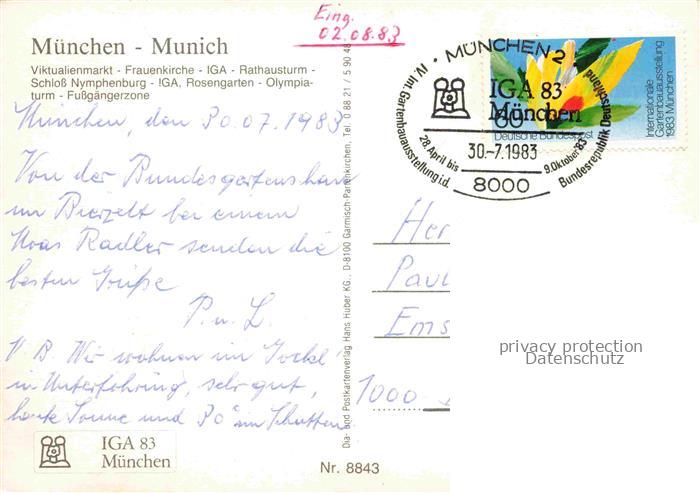 Eing.
02.08.83
München - Munich
Viktualienmarkt - Frauenkirche - IGA - Rathausturm -
Schloß Nymphenburg - IGA, Rosengarten - Olympia-
turm - Fußgängerzone
München, den 30.07.1983
Von der Bundesgartenschau
im Bierzelt bei einem
Mass Radler senden die
besten Grüße
P. u. L.
N.B. Wir wohnen im Gockl
in Unterföhring, sehr gut,
heute Sonne und 30° im Schatten
IGA 83
München
Dia- und Postkartenverlag Hans Huber KG., D-8100 Garmisch-Partenkirchen, Tel. 0 88 21 / 5 90 48
Nr. 8843
MÜNCHEN 2
IV. Int. Gartenbauausstellung i.d. Bundesrepublik Deutschland
IGA 83
München
28. April bis 9. Oktober '83
30.-7.1983
8000
60
Deutsche Bundespost
Internationale
Gartenbauausstellung
1983 München
Her
Paul
Ems
1000
privacy protection
Datenschutz